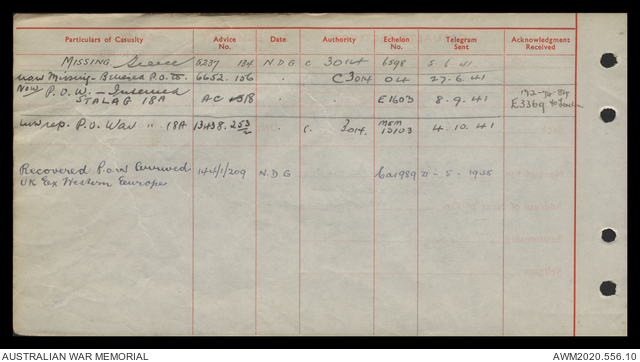 Particulars of Casualty Advice No. Date Authority Echelon No. Telegram Sent Acknowledgment Received
MISSING Greece 5237 134 N.D.G C 3014 6598 5.6.41
Now Missing - Believed P.O.W. 6652 156 C3014 04 27-6.41
Now P.O.W. - Interned
STALAG 18A AC 518 E1603 8.9.41 E3369
rep. P.O. War 18A 13438. 253/2 C. 3014. MEM 10103 4.10.41
Recovered P.O.W arrived 144/1/209 N.D.G 1989 21-5-1945
UK Ex Western Europe
AUSTRALIAN WAR MEMORIAL AWM2020.556.10